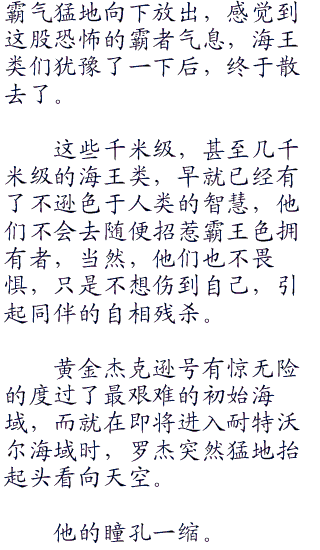 霸气猛地向下放出，感觉到
这股恐怖的霸者气息，海王
类们犹豫了一下后，终于散
去了。
这些千米级，甚至几千
米级的海王类，早就已经有
了不逊色于人类的智慧，他
们不会去随便招惹霸王色拥
有者，当然，他们也不畏
惧，只是不想伤到自己，引
起同伴的自相残杀。
黄金杰克逊号有惊无险
的度过了最艰难的初始海
域，而就在即将进入耐特沃
尔海域时，罗杰突然猛地抬
起头看向天空。
他的瞳孔一缩。